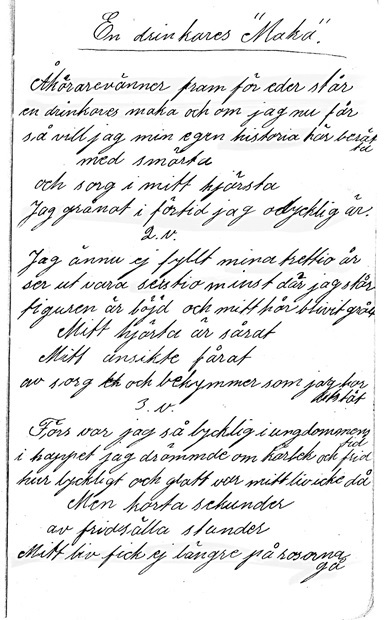 En drinkares "Maka".
Åhörarevänner fram för eder står
en drinkares maka och om jag nu får
så vill jag min egen historia här berät
ta
med smärta
och sorg i mitt hjärta
Jag grånat i förtid jag olycklig är.
2.v.
Jag ännu ej fyllt mina trettio år
ser ut vara sextio minst där jag står
figuren är böjd och mitt hår blivit grått
Mitt hjärta är sårat
Mitt ansikte fårat
av sorg och bekymmer som jag har
utstått
3.v.
Förs var jag så lycklig i ungdomens
tid
i hoppet jag drömmde om kärlek och frid
hur lyckligt och glatt var mitt liv icke då
Men korta sekunder
av fridsälla stunder
Mitt liv fick ej längre på rosorna
gå